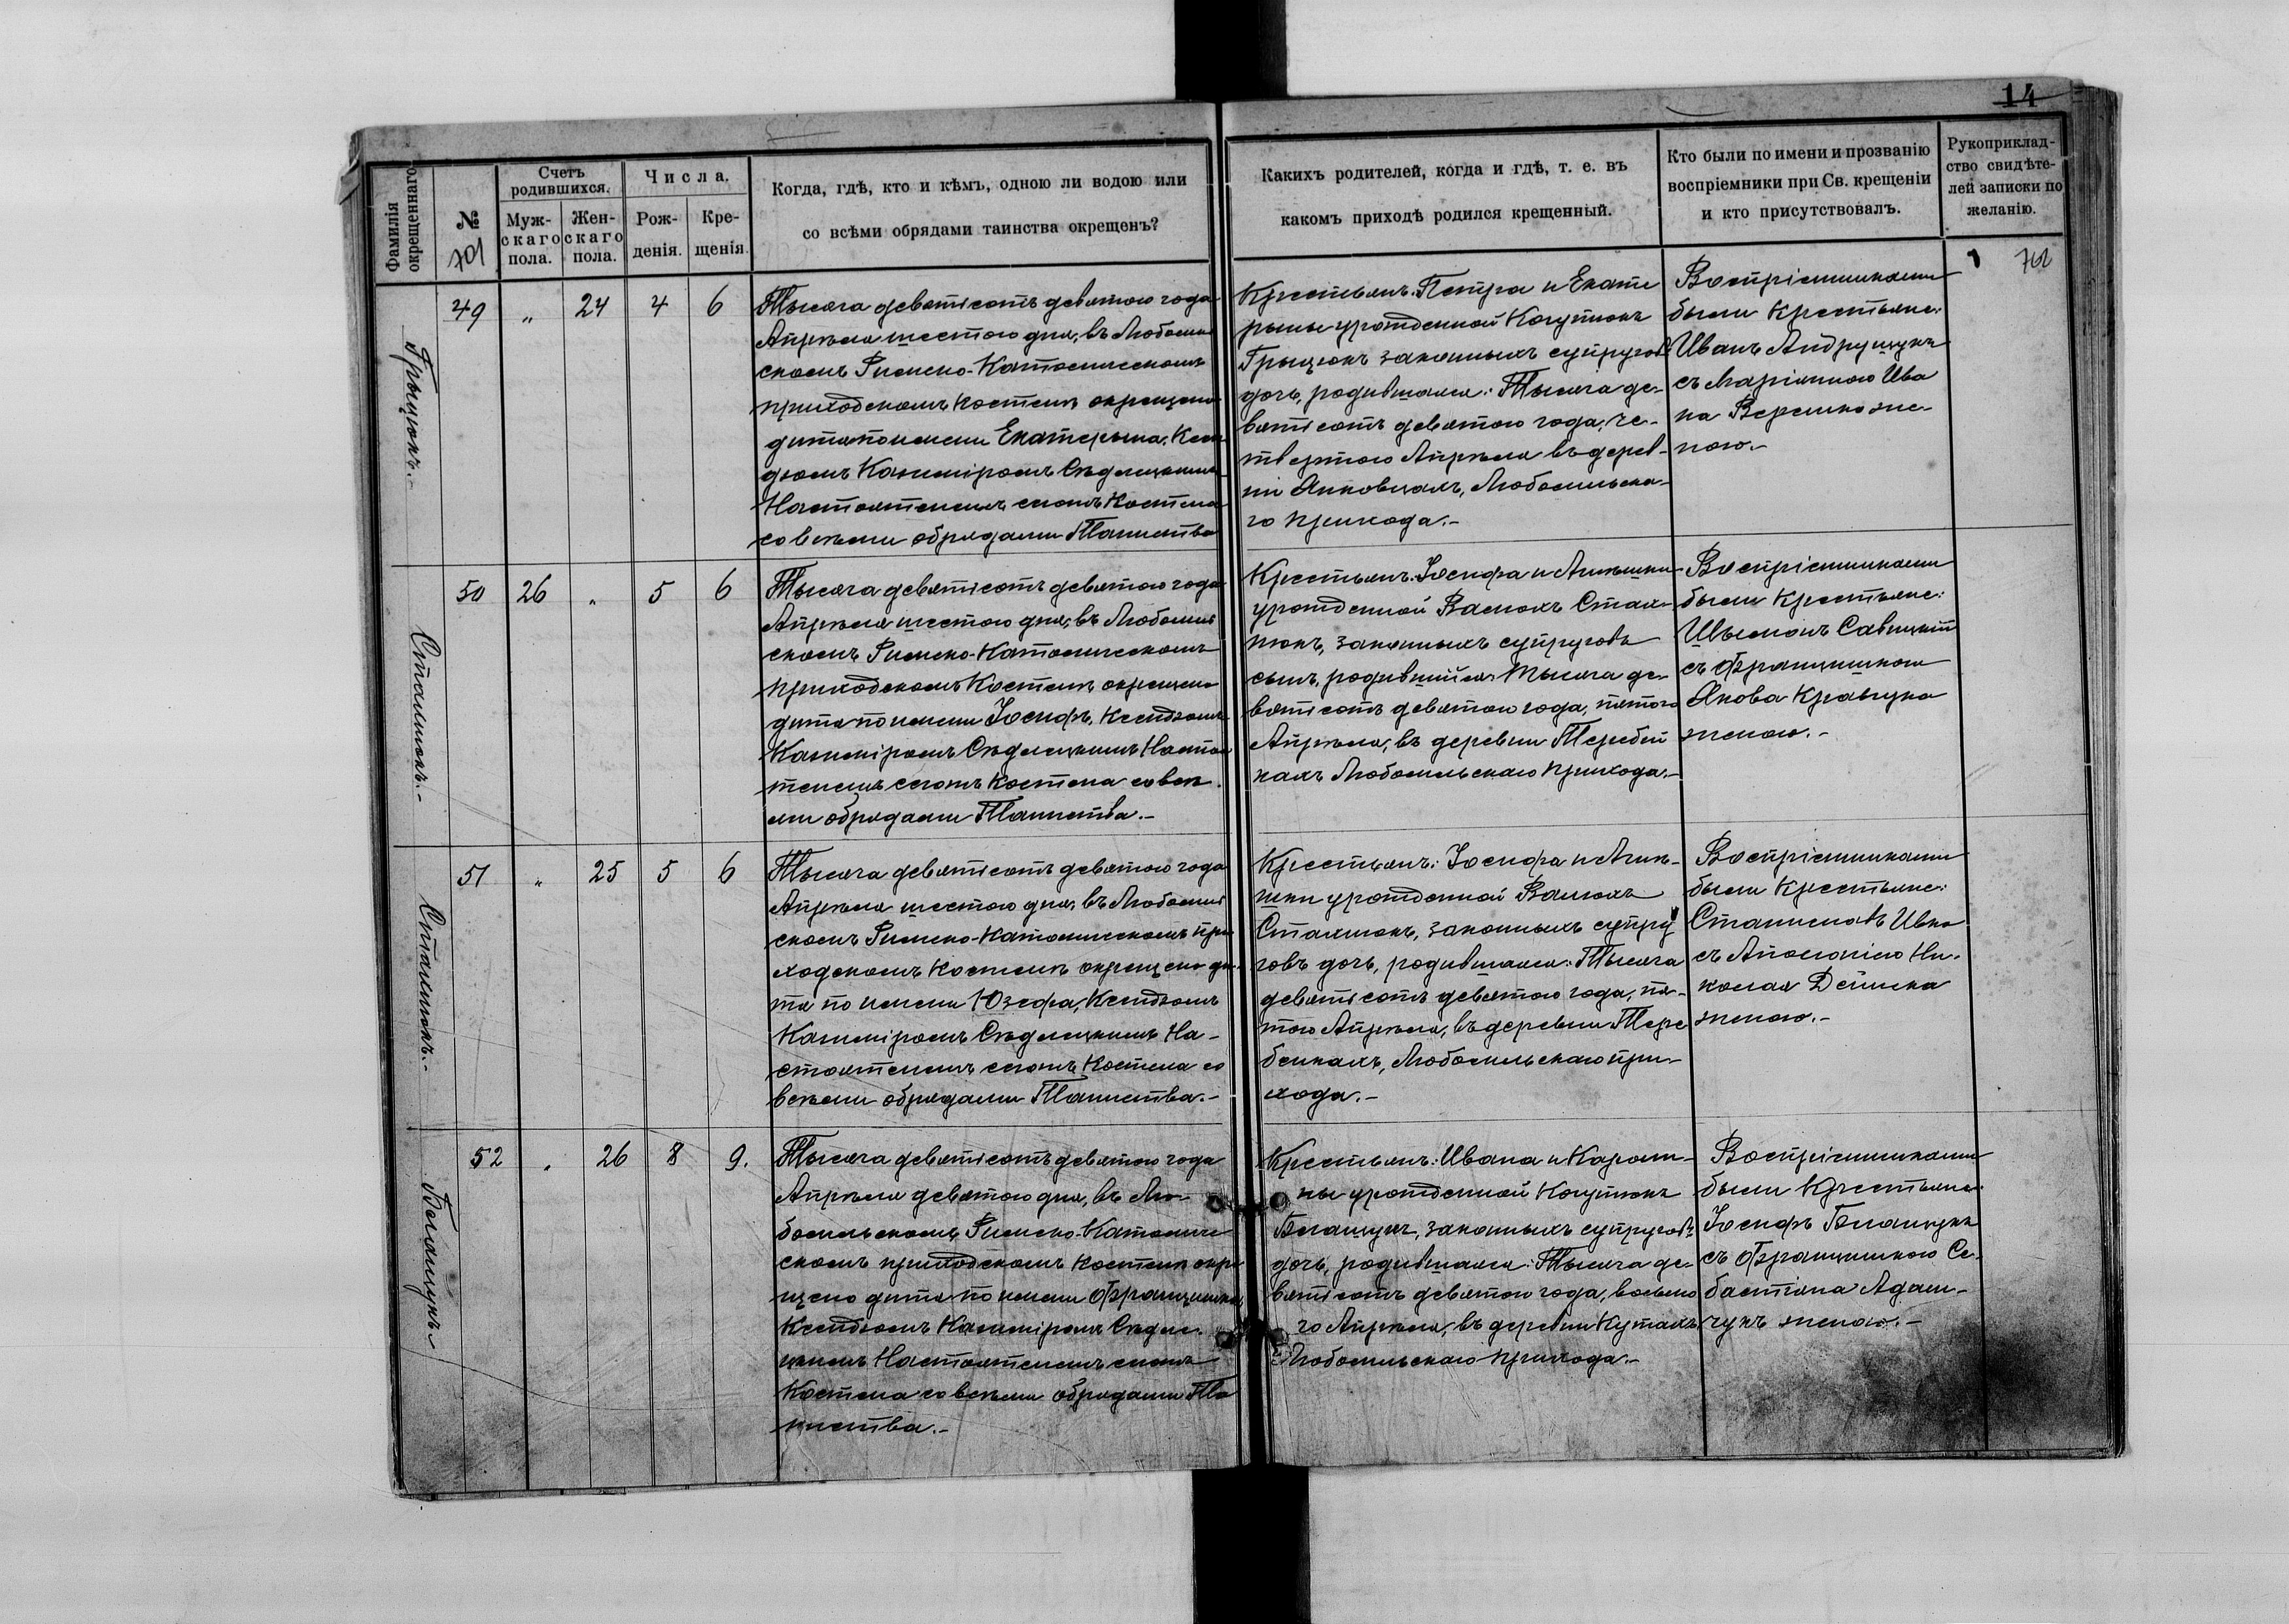 14
Фамилія окрещеннаго.
№
701
Счетъ родившихся.
Муж-
скаго
пола.
Жен-
скаго
пола.
Числа.
Рож-
денія.
Кре-
щенія.
Когда, гдѣ, кто и кѣмъ, одною ли водою или
со всѣми обрядами таинства окрещенъ?
Какихъ родителей, когда и гдѣ, т. е. въ
какомъ приходѣ родился крещенный.
Кто были по имени и прозванію
воспріемники при Св. крещеніи
и кто присутствовалъ.
Рукоприклад-
ство свидѣте-
лей записки по
желанію.
Грыцюкъ.-
49 " 24 4 6
Тысяча девятьсотъ девятого года
Апрѣля шестого дня, въ Любомль
скомъ Римско-Католическомъ
приходскомъ Костелѣ окрещено
дитя по имени Екатерына, Ксен
дзомъ Казиміромъ Сѣдлецкимъ
Настоятелемъ сегожъ Костела
со всѣми обрядами Таинства
Крестьянъ: Петра и Екате
рыны урожденной Когутюкъ
Грыцюкъ законныхъ супруговъ
дочь, родившаяся: Тысяча де-
вятьсотъ девятого года, че-
твертого Апрѣля въ дерев-
ни Янковцахъ, Любомльска-
го прихода.-
Воспріемниками
были Крестьяне:
Иванъ Андрущукъ
съ Маріянною Ива
на Веремко же-
ною.-
Стахнюкъ.-
50 26 " 5 6
Тысяча девятьсотъ девятого года
Апрѣля шестого дня, въ Любомль
скомъ Римско-Католическомъ
приходскомъ Костелѣ окрещено
дитя по имени Іосифъ, Ксендзомъ
Казиміромъ Сѣдлецкимъ Настоя
телемъ сегожъ Костела со всѣ
ми обрядами Таинства.-
Крестьянъ: Іосифа и Агнѣшки
урожденной Стах-
нюкъ, законныхъ супруговъ
сынъ, родившійся Тысяча де-
вятьсотъ девятого года, пятого
Апрѣля, въ деревни Теребей
кахъ Любомльскаго прихода.-
Воспріемниками
были Крестьяне:
Шымонъ Савицкій
съ Францишкою
Якова Кравчука
женою.-
Стахнюкъ.-
51 " 25 5 6
Тысяча девятьсотъ девятого года
Апрѣля шестого дня, въ Любомль
скомъ Римско-Католическомъ при
ходскомъ Костелѣ окрещено ди-
тя по имени Юзефа, Ксендзомъ
Казиміромъ Сѣдлецкимъ На-
стоятелемъ сегожъ Костела со
всѣми обрядами Таинства.-
Крестьянъ: Іосифа и Агнѣ-
шки урожденной
Стахнюкъ, законныхъ супру
говъ дочь, родившаяся: Тысяча
девятьсотъ девятого года, пя-
того Апрѣля, въ деревни Тере
бейкахъ, Любомльскаго при-
хода.-
Воспріемниками
были Крестьяне:
Станиславъ Ивко
съ Аполоніею Ни-
колая Дейнека
женою.-
Блащукъ
52 " 26 8 9.
Тысяча девятьсотъ девятого года
Апрѣля девятого дня, въ Лю-
бомльскомъ Римско-Католиче
скомъ приходскомъ Костелѣ окре
щено дитя по имени Францишка,
Ксендзомъ Казиміромъ Сѣдле-
цкимъ Настоятелемъ сегожъ
Костела со всѣми обрядами Та
инства.-
Крестьянъ: Ивана и Кароли-
ны урожденной Когутюкъ
Блащукъ, законныхъ супруговъ
дочь, родившаяся: Тысяча де-
вятьсотъ девятого года, восьмо
го Апрѣля, въ деревни Кутахъ,
Любомльскаго прихода.-
Воспріемниками
были Крестьяне
Іосифъ Блащукъ
съ Францишкою Се-
бастіана Адам-
чукъ женою.-